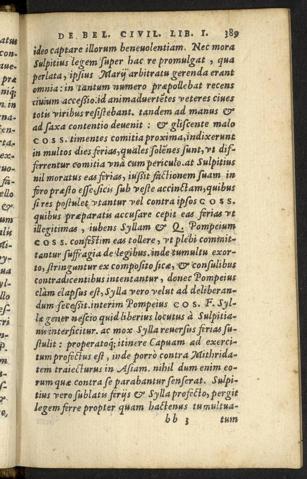 DE BEL. CIVIL. LIB. I. 389
ideo captare illorum beneuolentiam. Nec mora
Sulpitius legem super hac re promulgat, qua
perlata, ipsius Marij arbitratu gerenda erant
omnia: in tantum numero præpollebat recens
ciuium accessio. id animaduertẽtes veteres ciues
totis viribus resistebant. tandem ad manus &
ad saxa contentio deuenit: & gliscente malo
COSS. timentes comitia proxima, indixerunt
in multos dies ferias, quales solẽnes sunt, vt dif-
ferrentur comitia vnà cum periculo. at Sulpitius
nil moratus eas ferias, iussit factionem suam in
foro præsto esse, sicis sub veste accinctam, quibus
si res postulet vtantur vel contra ipsos COSS.
quibus præparatis accusare cepit eas ferias vt
illegitimas, iubens Syllam & Q. Pompeium
COSS. confestim eas tollere, vt plebi committ-
tantur suffragia de legibus. inde tumultu exor-
to, stringuntur ex composito sicæ, & consulibus
contradicentibus intentantur, donec Pompeius
clàm elapsus est, Sylla vero velut ad deliberan-
dum secessit. interim Pompeius COS. F. Syl-
læ gener nescio quid liberius locutus à Sulpitia-
nis interficitur. ac mox Sylla reuersus ferias su-
stulit: properatoq; itinere Capuam ad exerci-
tum profectus est, inde porrò contra Mithrida-
tem traiecturus in Asiam. nihil dum enim eo-
rum quæ contra se parabantur senserat. Sulpi-
tius vero sublatis ferijs & Sylla profecto, pergit
legem ferre propter quam hactenus tumultua-
bb 3 tum